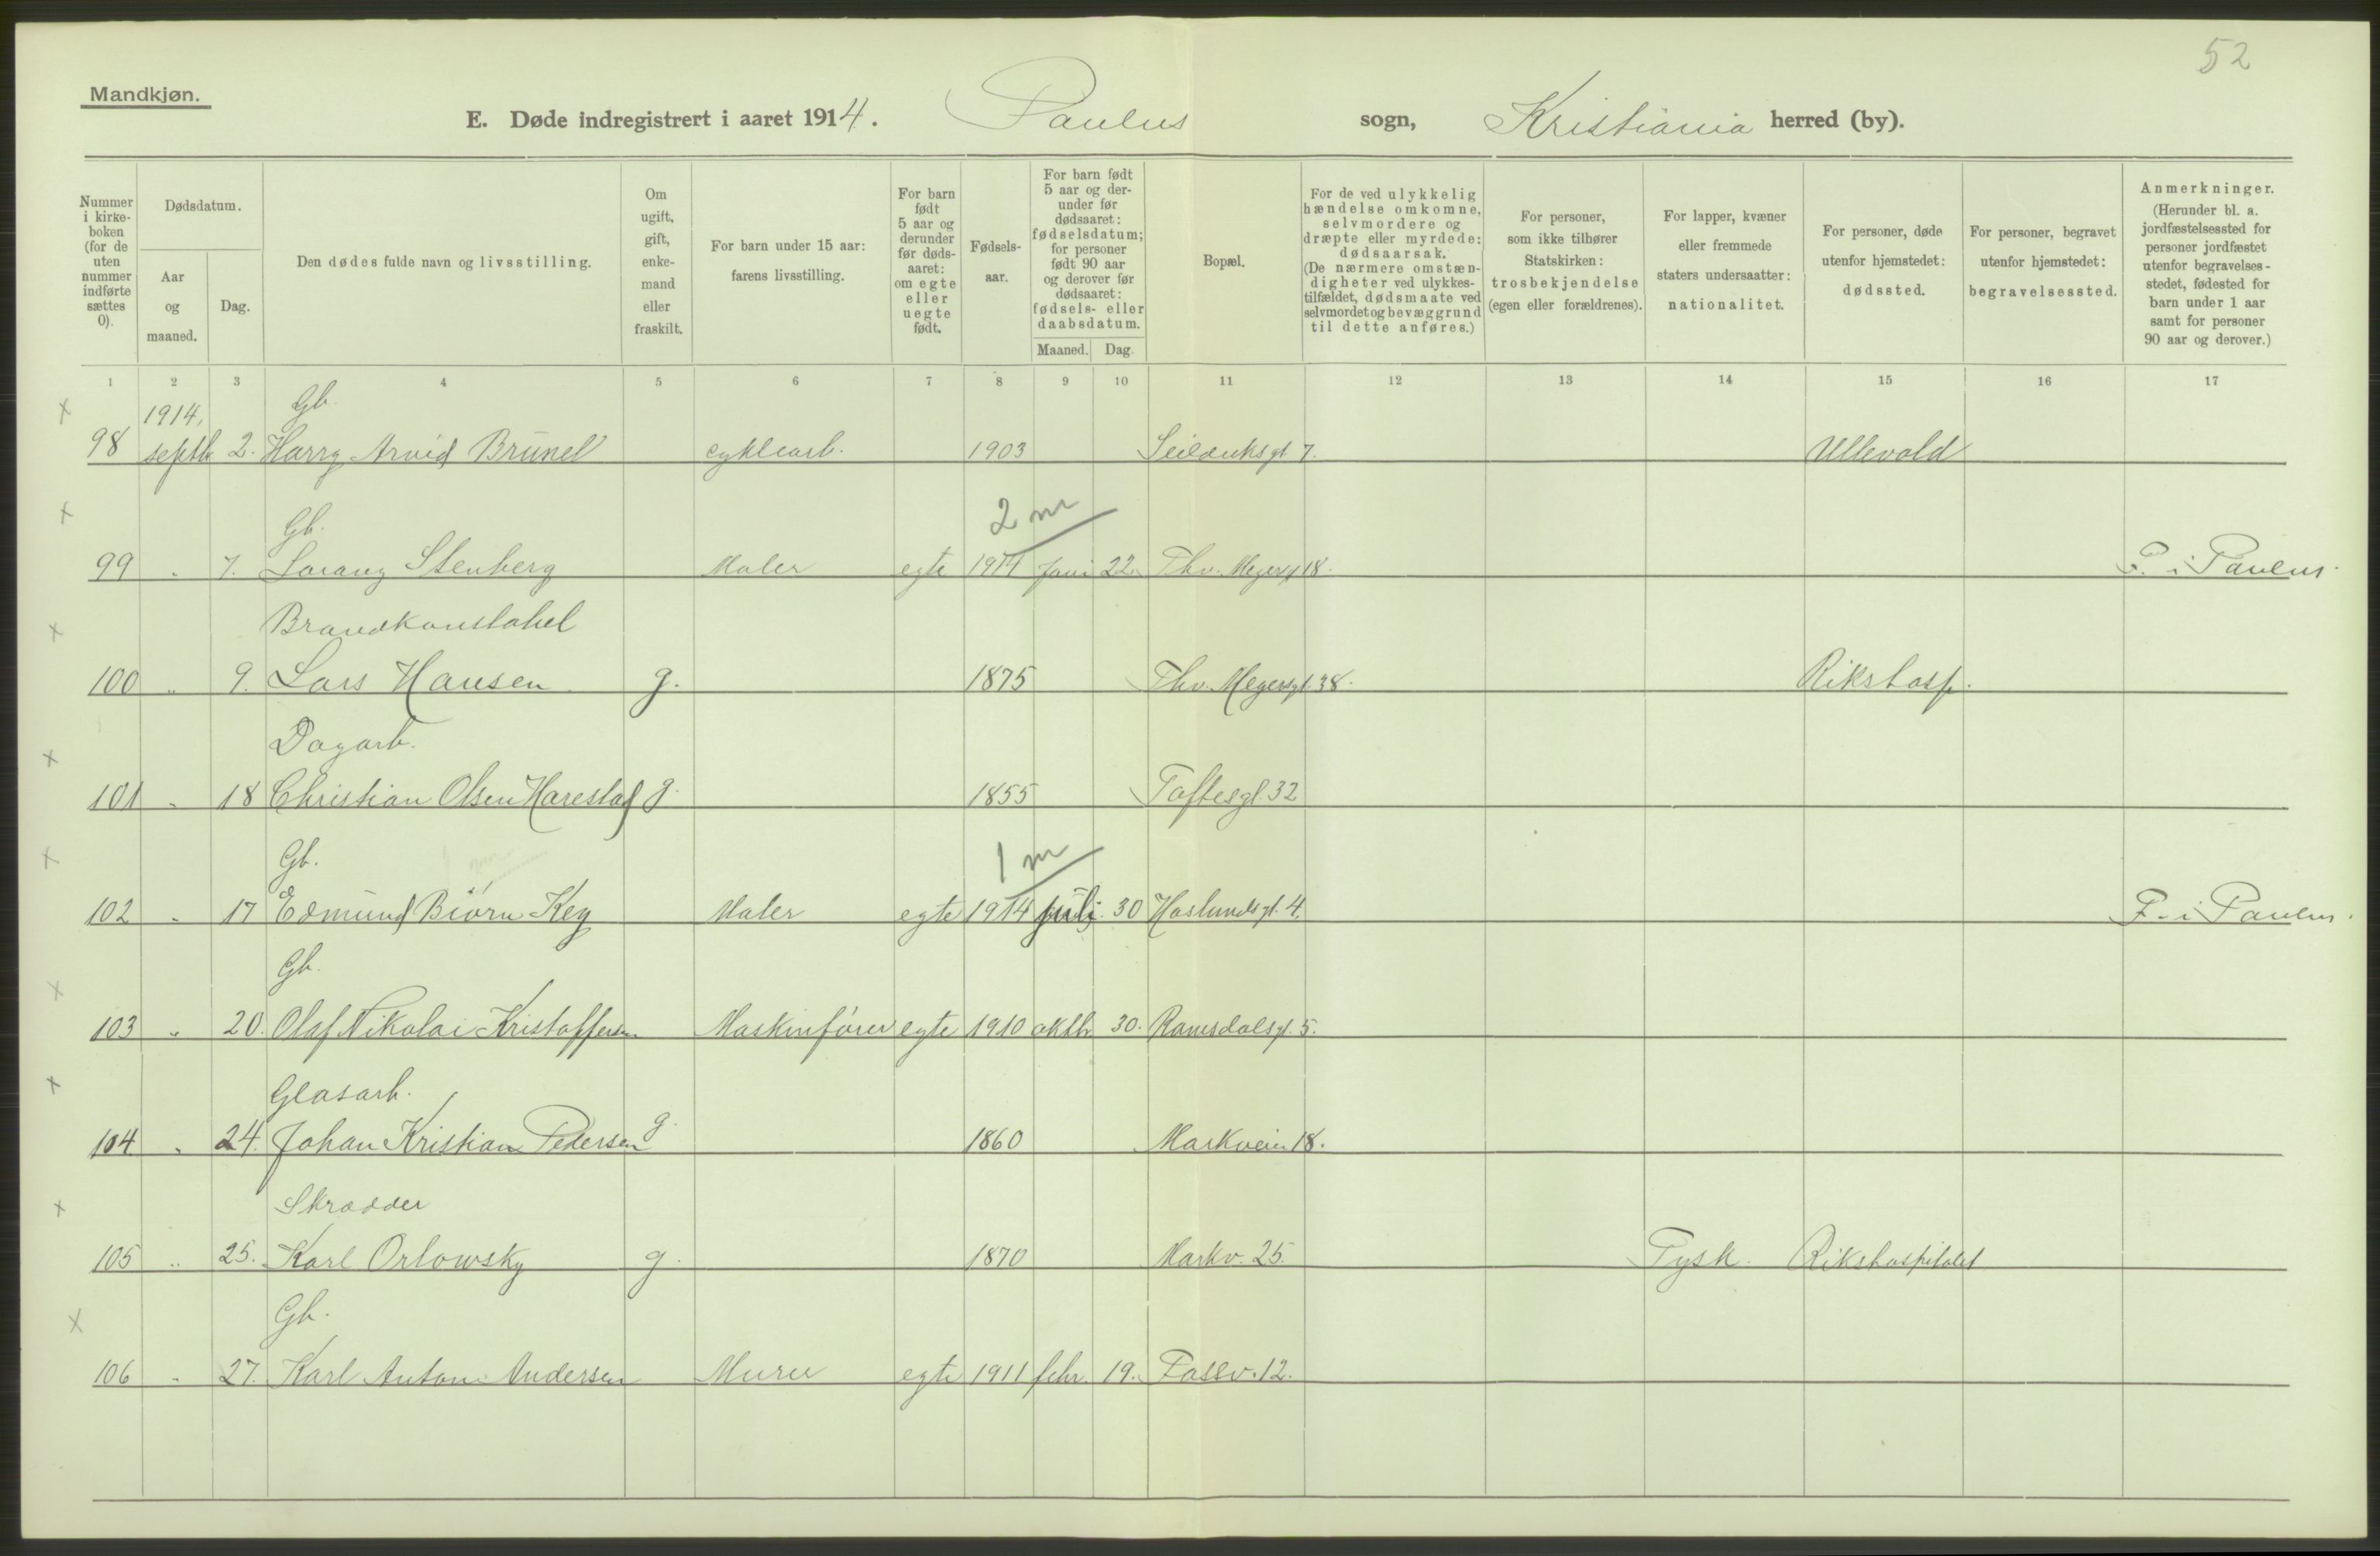 52
Mandkjøn.
E. Døde indregistrert i aaret 1914. Paulus sogn, Kristiania herred (by).
Nummer i kirke-boken (for de uten nummer indførte sættes 0).
Dødsdatum.
Aar og maaned.
Dag.
Den dødes fulde navn og livsstilling.
Om ugift, gift, enke-mand eller fraskilt.
For barn under 15 aar: farens livsstilling.
For barn født 5 aar og derunder før døds-aaret: om egte eller uegte født.
Fødsels-aar.
For barn født 5 aar og der-under før dødsaaret: fødselsdatum; for personer født 90 aar og derover før dødsaaret: fødsels- eller daabsdatum.
Maaned. Dag.
Bopæl.
For de ved ulykkelig hændelse omkomne, selvmordere og dræpte eller myrdede: dødsaarsak. (De nærmere omstæn-digheter ved ulykkes-tilfældet, dødsmaate ved selvmordet og bevæggrund til dette anføres.)
For personer, som ikke tilhører Statskirken: trosbekjendelse (egen eller forældrenes).
For lapper, kvæner eller fremmede staters undersaatter: nationalitet.
For personer, døde utenfor hjemstedet: dødssted.
For personer, begravet utenfor hjemstedet: begravelsessted.
Anmerkninger. (Herunder bl. a. jordfæstelsessted for personer jordfæstet utenfor begravelses-stedet, fødested for barn under 1 aar samt for personer 90 aar og derover.)
1 2 3 4 5 6 7 8 9 10 11 12 13 14 15 16 17
x 1914, Gb.
98 septb 2. Harry Arvid Brunel cyklearb. 1903 Seilduksgt 7. Ullevold
x Gb. 2 m
99 " 7. Lorang Stenberg Maler egte 1914 Juni 22. Thv. Meyersg 18. F. i Paulus.
x Brandkonstabel
100 " 9. Lars Hansen g. 1875 Thv. Meyersgt. 38. Rikshosp.
x Dagarb.
101 " 18 Christian Olsen Harestad g. 1855 Toftesgt. 32
x Gb. 1 m
102 " 17 Edmund Biørn Key Maler egte 1914 juli 30 Haslundsgt. 4. F. i Paulus.
x Gb.
103 " 20. Olaf Nikolai Kristoffersen Maskinfører egte 1910 oktbr 30. Romsdalsgt. 5.
x Glasarb.
104 " 24. Johan Kristian Pedersen g. 1860 Markveien 18.
x Skrædder
105 " 25. Karl Orlowsky g. 1870 Markv. 25. Tysk. Rikshospitalet
x Gb.
106 " 27. Karl Anton Andersen Murer egte 1911 febr. 19. Fossv. 12.